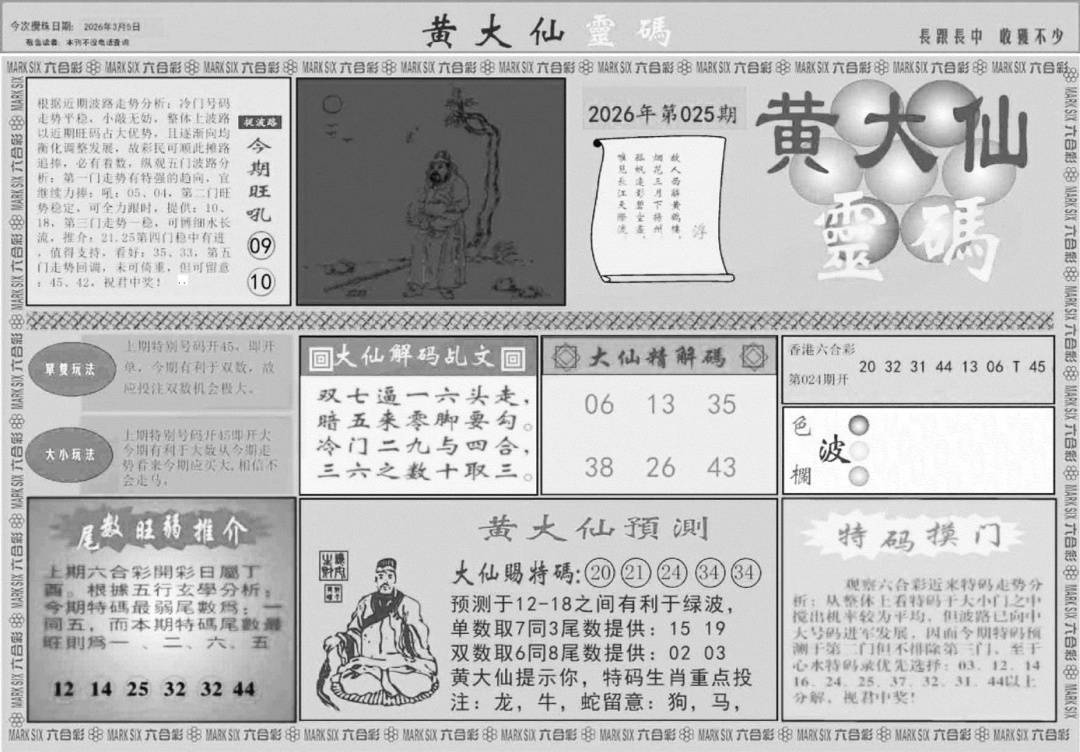 今次攪珠日期: 2026年3月5日
敬告读者: 本刊不设电话查询
黄大仙靈碼
長跟長中 收獲不少
MARK SIX 六合彩
根据近期波路走势分析: 冷门号码
走势平稳, 小敲无妨, 整体上波路
以近期旺码占大优势, 且逐渐向均
衡化调整发展, 故彩民可顺此摊路
追捧, 必有着数, 纵观五门波路分
析: 第一门走势有特强的趋向, 宜
继续力捧: 吼: 05、04, 第二门旺
势稳定, 可全力跟时, 提供: 10、
18, 第三门走势一稳, 可博细水长
流, 推介: 21.25第四门稳中有进
, 值得支持, 看好: 35、33, 第五
门走势回调, 未可倚重, 但可留意
: 45、42, 祝君中奖!
捉波路
今期旺吼
09
10
2026年第025期
故人西辞黄鹤楼,
烟花三月下扬州
孤帆远影碧空盡,
唯見长江天際流
浮
黄大仙
靈碼
單雙玩法
上期特别号码开45, 即开
单, 今期有利于双数, 故
应投注双数机会极大。
大小玩法
上期特别号码开45即开大
今期有利于大数从今期走
势看来今期应买大,相信不
会走马。
大仙解码乩文
双七逼一六头走,
暗五来零脚要勾。
冷门二九与四合,
三六之数十取三。
大仙精解碼
06 13 35
38 26 43
香港六合彩
第024期开
20 32 31 44 13 06 T 45
色波欄
尾数旺弱推介
上期六合彩開彩日屬丁
酉。根據五行玄學分析;
今期特碼最弱尾數爲:一
同五,而本期特碼尾數最
旺則爲一、二、六、五
12 14 25 32 32 44
黄大仙預測
大仙賜特碼:20 21 24 34 34
预测于12-18之间有利于绿波,
单数取7同3尾数提供: 15 19
双数取6同8尾数提供: 02 03
黄大仙提示你, 特码生肖重点投
注: 龙, 牛, 蛇留意: 狗, 马,
特码摸门
观察六合彩近来特码走势分
析: 从整体上看特码于大小门之中
搅出机率较为平均, 但波路已向中
大号码进军发展, 因而今期特码预
测于第二门但不排除第三门、至于
心水特码录优先选择: 03. 12. 14
16. 24. 25. 37. 32. 31. 44以上
分解, 祝君中奖!